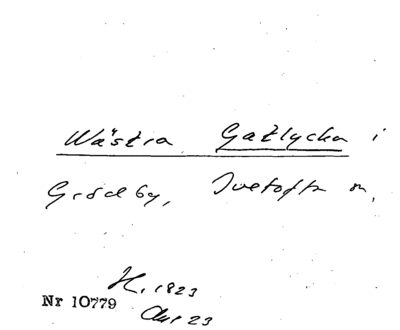 Wästra Gatlycka i
Grödby, Ivetofta sn,
H. 1823
Nr 10779
Akt 23